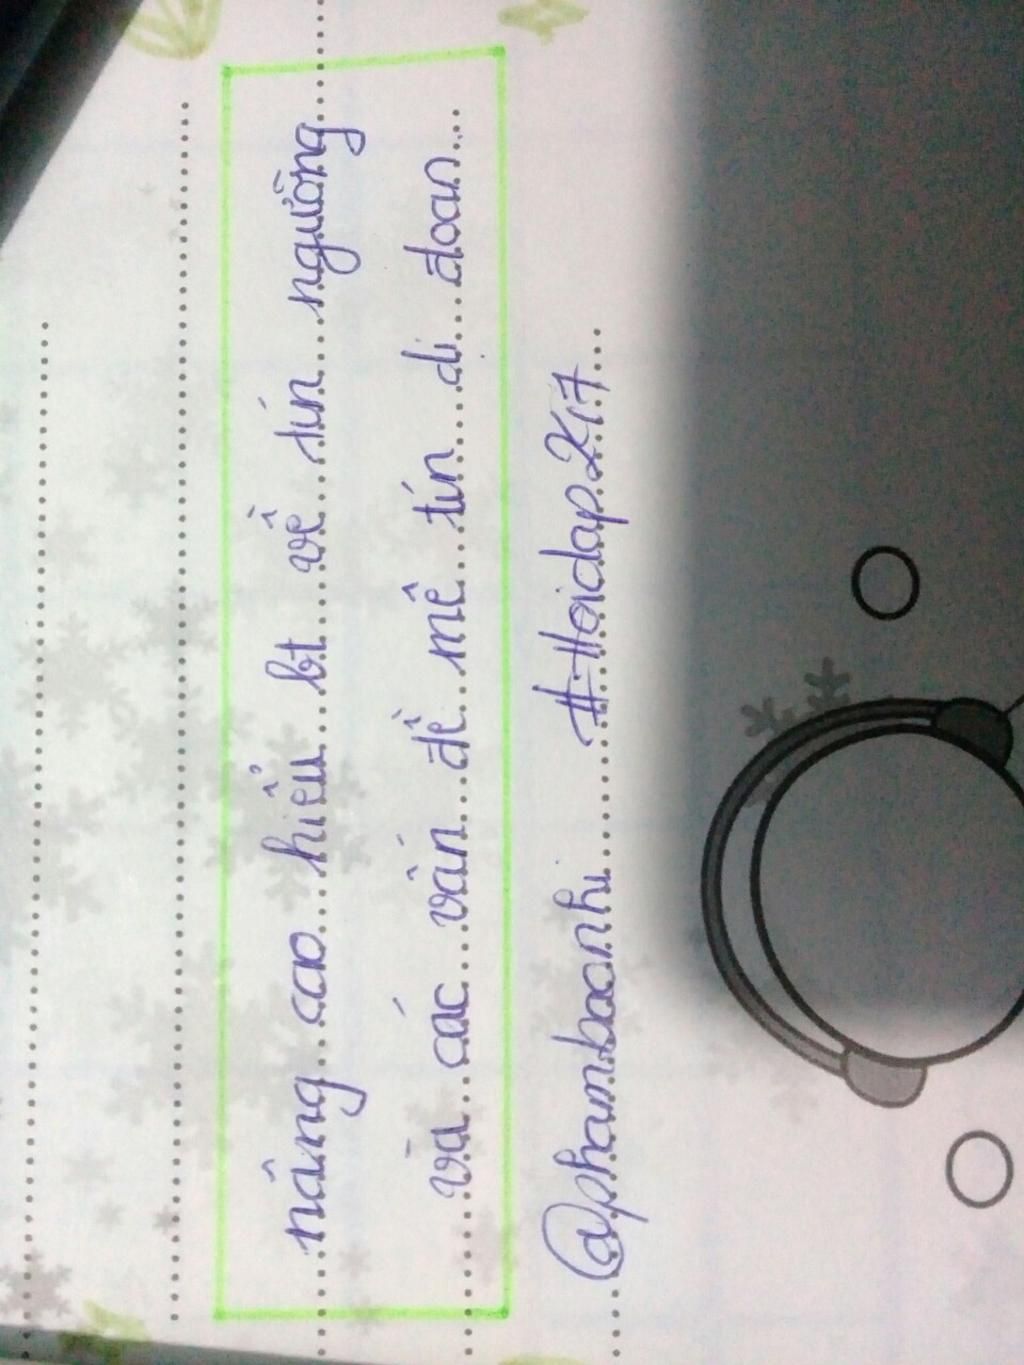 nâng cao hiểu bt về tín ngưỡng
và các vấn đề mê tín dị đoan
@phambaanhi #Hoidap2k17